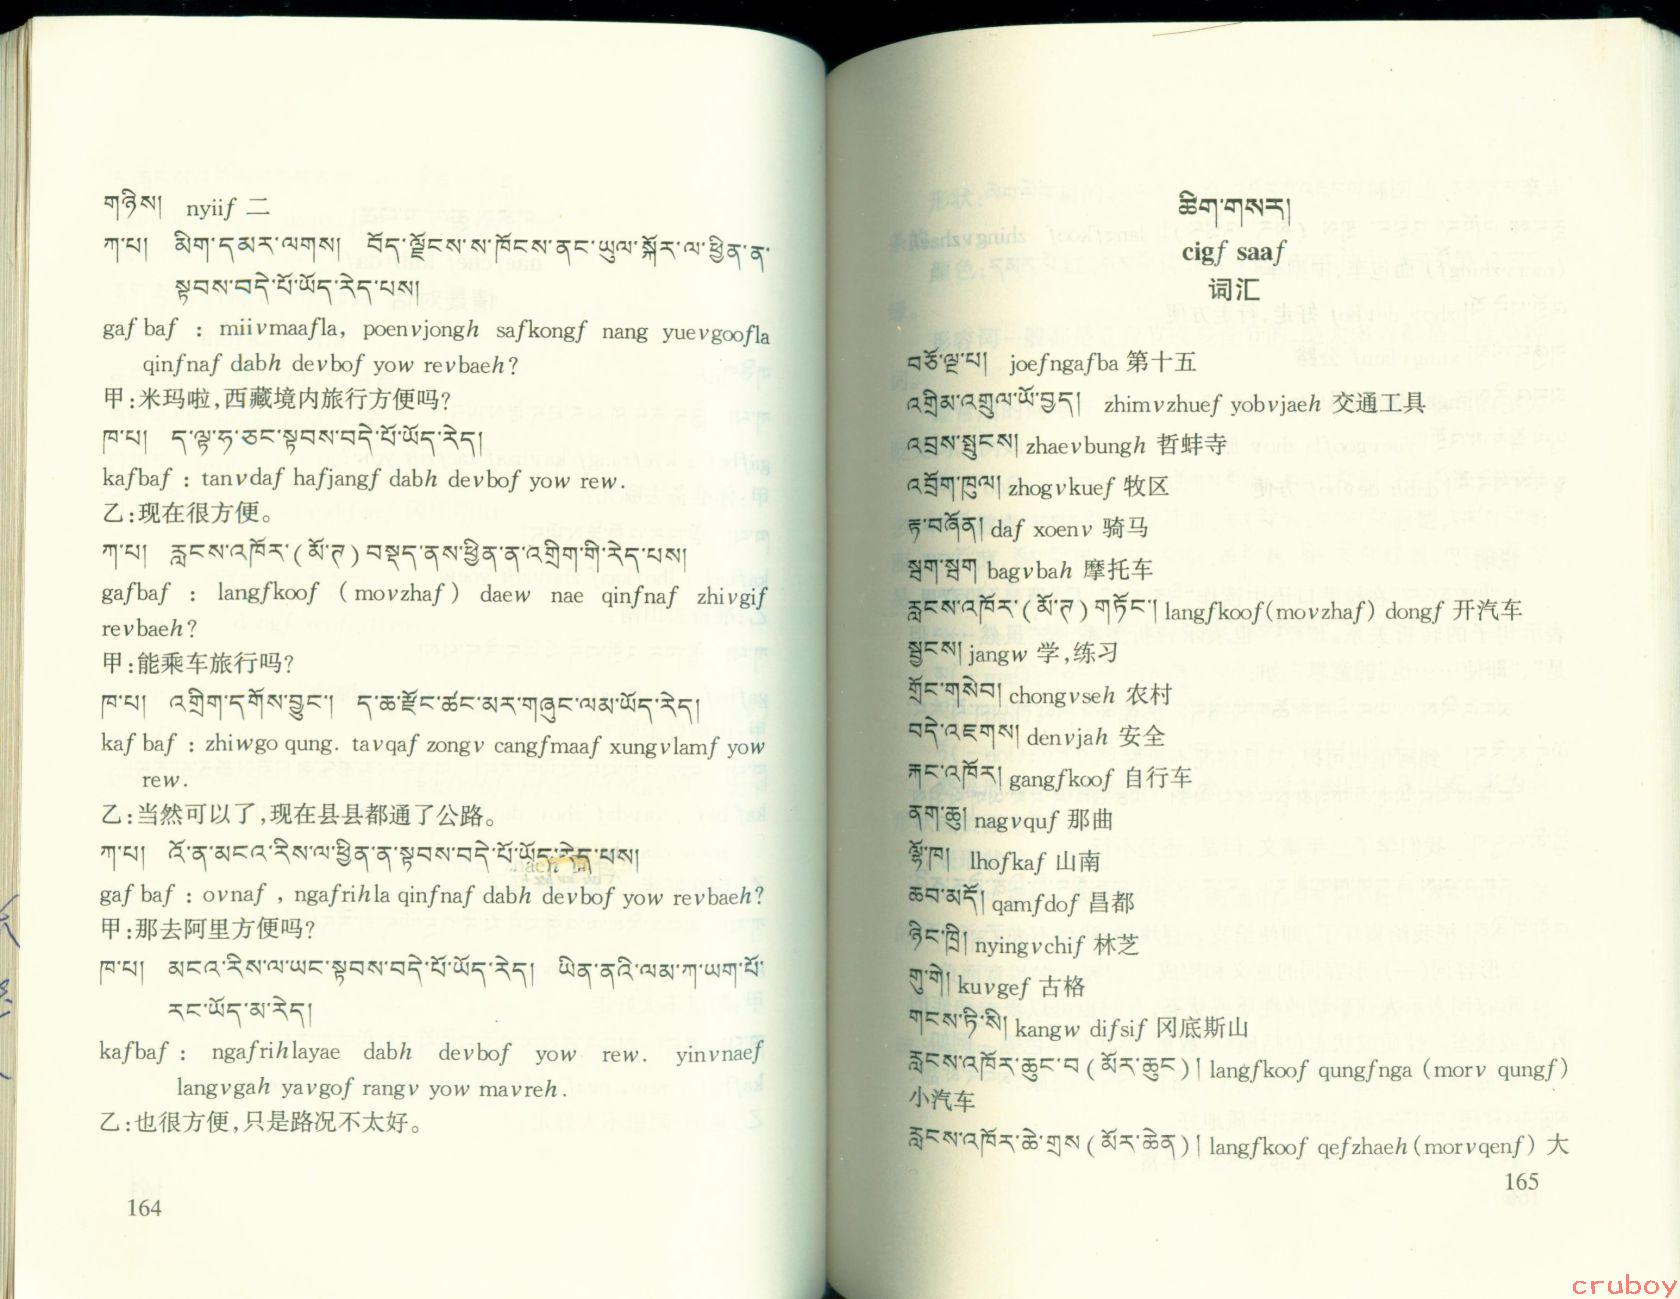 གཉིས། nyiif 二
ཀ་པ། མིག་དམར་ལགས། བོད་ལྗོངས་ས་ཁོངས་ནང་ཡུལ་སྐོར་ལ་ཕྱིན་ན་
སྟབས་བདེ་པོ་ཡོད་རེད་པས།
gaf baf : miivmaafla, poenvjongh safkongf nang yuevgoofla
qinfnaf dabh devbof yow revbaeh?
甲:米玛啦,西藏境内旅行方便吗?
ཁ་པ། ད་ལྟ་ཧ་ཅང་སྟབས་བདེ་པོ་ཡོད་རེད།
kafbaf : tanvdaf hafjangf dabh devbof yow rew.
乙:现在很方便。
ཀ་པ། རླངས་འཁོར་(མོ་ཊ)བསྡད་ནས་ཕྱིན་ན་འགྲིག་གི་རེད་པས།
gafbaf : langfkoof (movzhaf) daew nae qinfnaf zhivgif
revbaeh?
甲:能乘车旅行吗?
ཁ་པ། འགྲིག་དགོས་བྱུང་། ད་ཆ་རྫོང་ཚང་མར་གཞུང་ལམ་ཡོད་རེད།
kaf baf : zhiwgo qung. tavqaf zongv cangfmaaf xungvlamf yow
rew.
乙:当然可以了,现在县县都通了公路。
ཀ་པ། འོ་ན་མངའ་རིས་ལ་ཕྱིན་ན་སྟབས་བདེ་པོ་ཡོད་རེད་པས།
gaf baf : ovnaf , ngafrihla qinfnaf dabh devbof yow revbaeh?
甲:那去阿里方便吗?
ཁ་པ། མངའ་རིས་ལ་ཡང་སྟབས་བདེ་པོ་ཡོད་རེད། ཡིན་ནའི་ལམ་ཀ་ཡག་པོ་
རང་ཡོད་མ་རེད།
kafbaf : ngafrihlayae dabh devbof yow rew. yinvnaef
langvgah yavgof rangv yow mavreh.
乙:也很方便,只是路况不太好。
164
ཚིག་གསར།
cigf saaf
词汇
བཅོ་ལྔ་པ། joefngafba 第十五
འགྲིམ་འགྲུལ་ཡོ་བྱད། zhimvzhuef yobvjaeh 交通工具
འབྲས་སྤུངས། zhaevbungh 哲蚌寺
འབྲོག་ཁུལ། zhogvkuef 牧区
རྟ་བཞོན། daf xoenv 骑马
སྦག་སྦག bagvbah 摩托车
རླངས་འཁོར་(མོ་ཊ)གཏོང་། langfkoof(movzhaf) dongf 开汽车
སྦྱངས། jangw 学,练习
གྲོང་གསེབ། chongvseh 农村
བདེ་འཇགས། denvjah 安全
རྐང་འཁོར། gangfkoof 自行车
ནག་ཆུ། nagvquf 那曲
ལྷོ་ཁ། lhofkaf 山南
ཆབ་མདོ། qamfdof 昌都
ཉིང་ཁྲི། nyingvchif 林芝
གུ་གེ། kuvgef 古格
གངས་ཏི་སི། kangw difsif 冈底斯山
རླངས་འཁོར་ཆུང་བ(མོར་ཆུང་)། langfkoof qungfnga (morv qungf)
小汽车
རླངས་འཁོར་ཆེ་གྲས(མོར་ཆེན)། langfkoof qefzhaeh(morvqenf) 大
165
cruboy